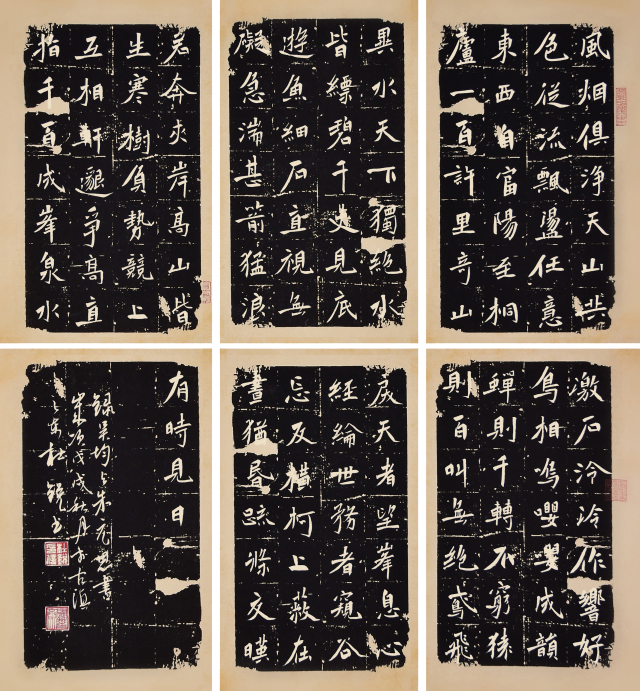 風烟俱淨天山共
色從流飄盪任意
東西自富陽至桐
廬一百許里奇山
異水天下獨絕水
皆縹碧千丈見底
遊魚細石直視無
礙急湍甚箭猛浪
若奔夾岸高山皆
生寒樹負勢競上
互相軒邈爭高直
指千百成峯泉水
激石泠泠作響好
鳥相鳴嚶嚶成韻
蟬則千轉不窮猿
則百叫無絕鳶飛
戾天者望峯息心
經綸世務者窺谷
忘反橫柯上蔽在
晝猶昏疏條交暎
有時見日
錄吳均與朱元思書
歲次戊戌秋月
杜銳書